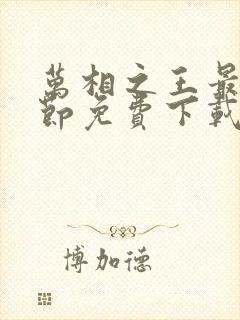 萬相之王最
節免費下載
博加德